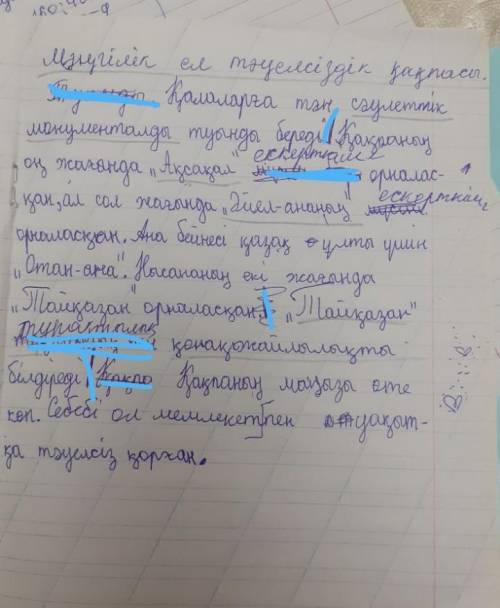 Мәңгілік ел тәуелсіздік қақпасы.
Қалаларға тән сәулеттік
монументалды туынды береді Қақпаның
оң жағында „Ақсақал" ескерткіші орналас-
қан, ал сол жағында „Әйел-ананың" ескерткіші
орналасқан. Ана бейнесі қазақ ұлты үшін
„Отан-ана". Нысананың екі жағында
„Тайқазан" орналасқан „Тайқазан"
тұрақтылық қонақжайлылықты
білдіреді Қақпа Қақпаның маңызы өте
көп. Себебі ол мемлекет пен уақыт-
қа тәуелсіз қорхан.